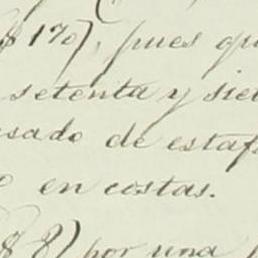 $170), pues qu
setenta y siet
sado de estaf
en costas.
$8) por una